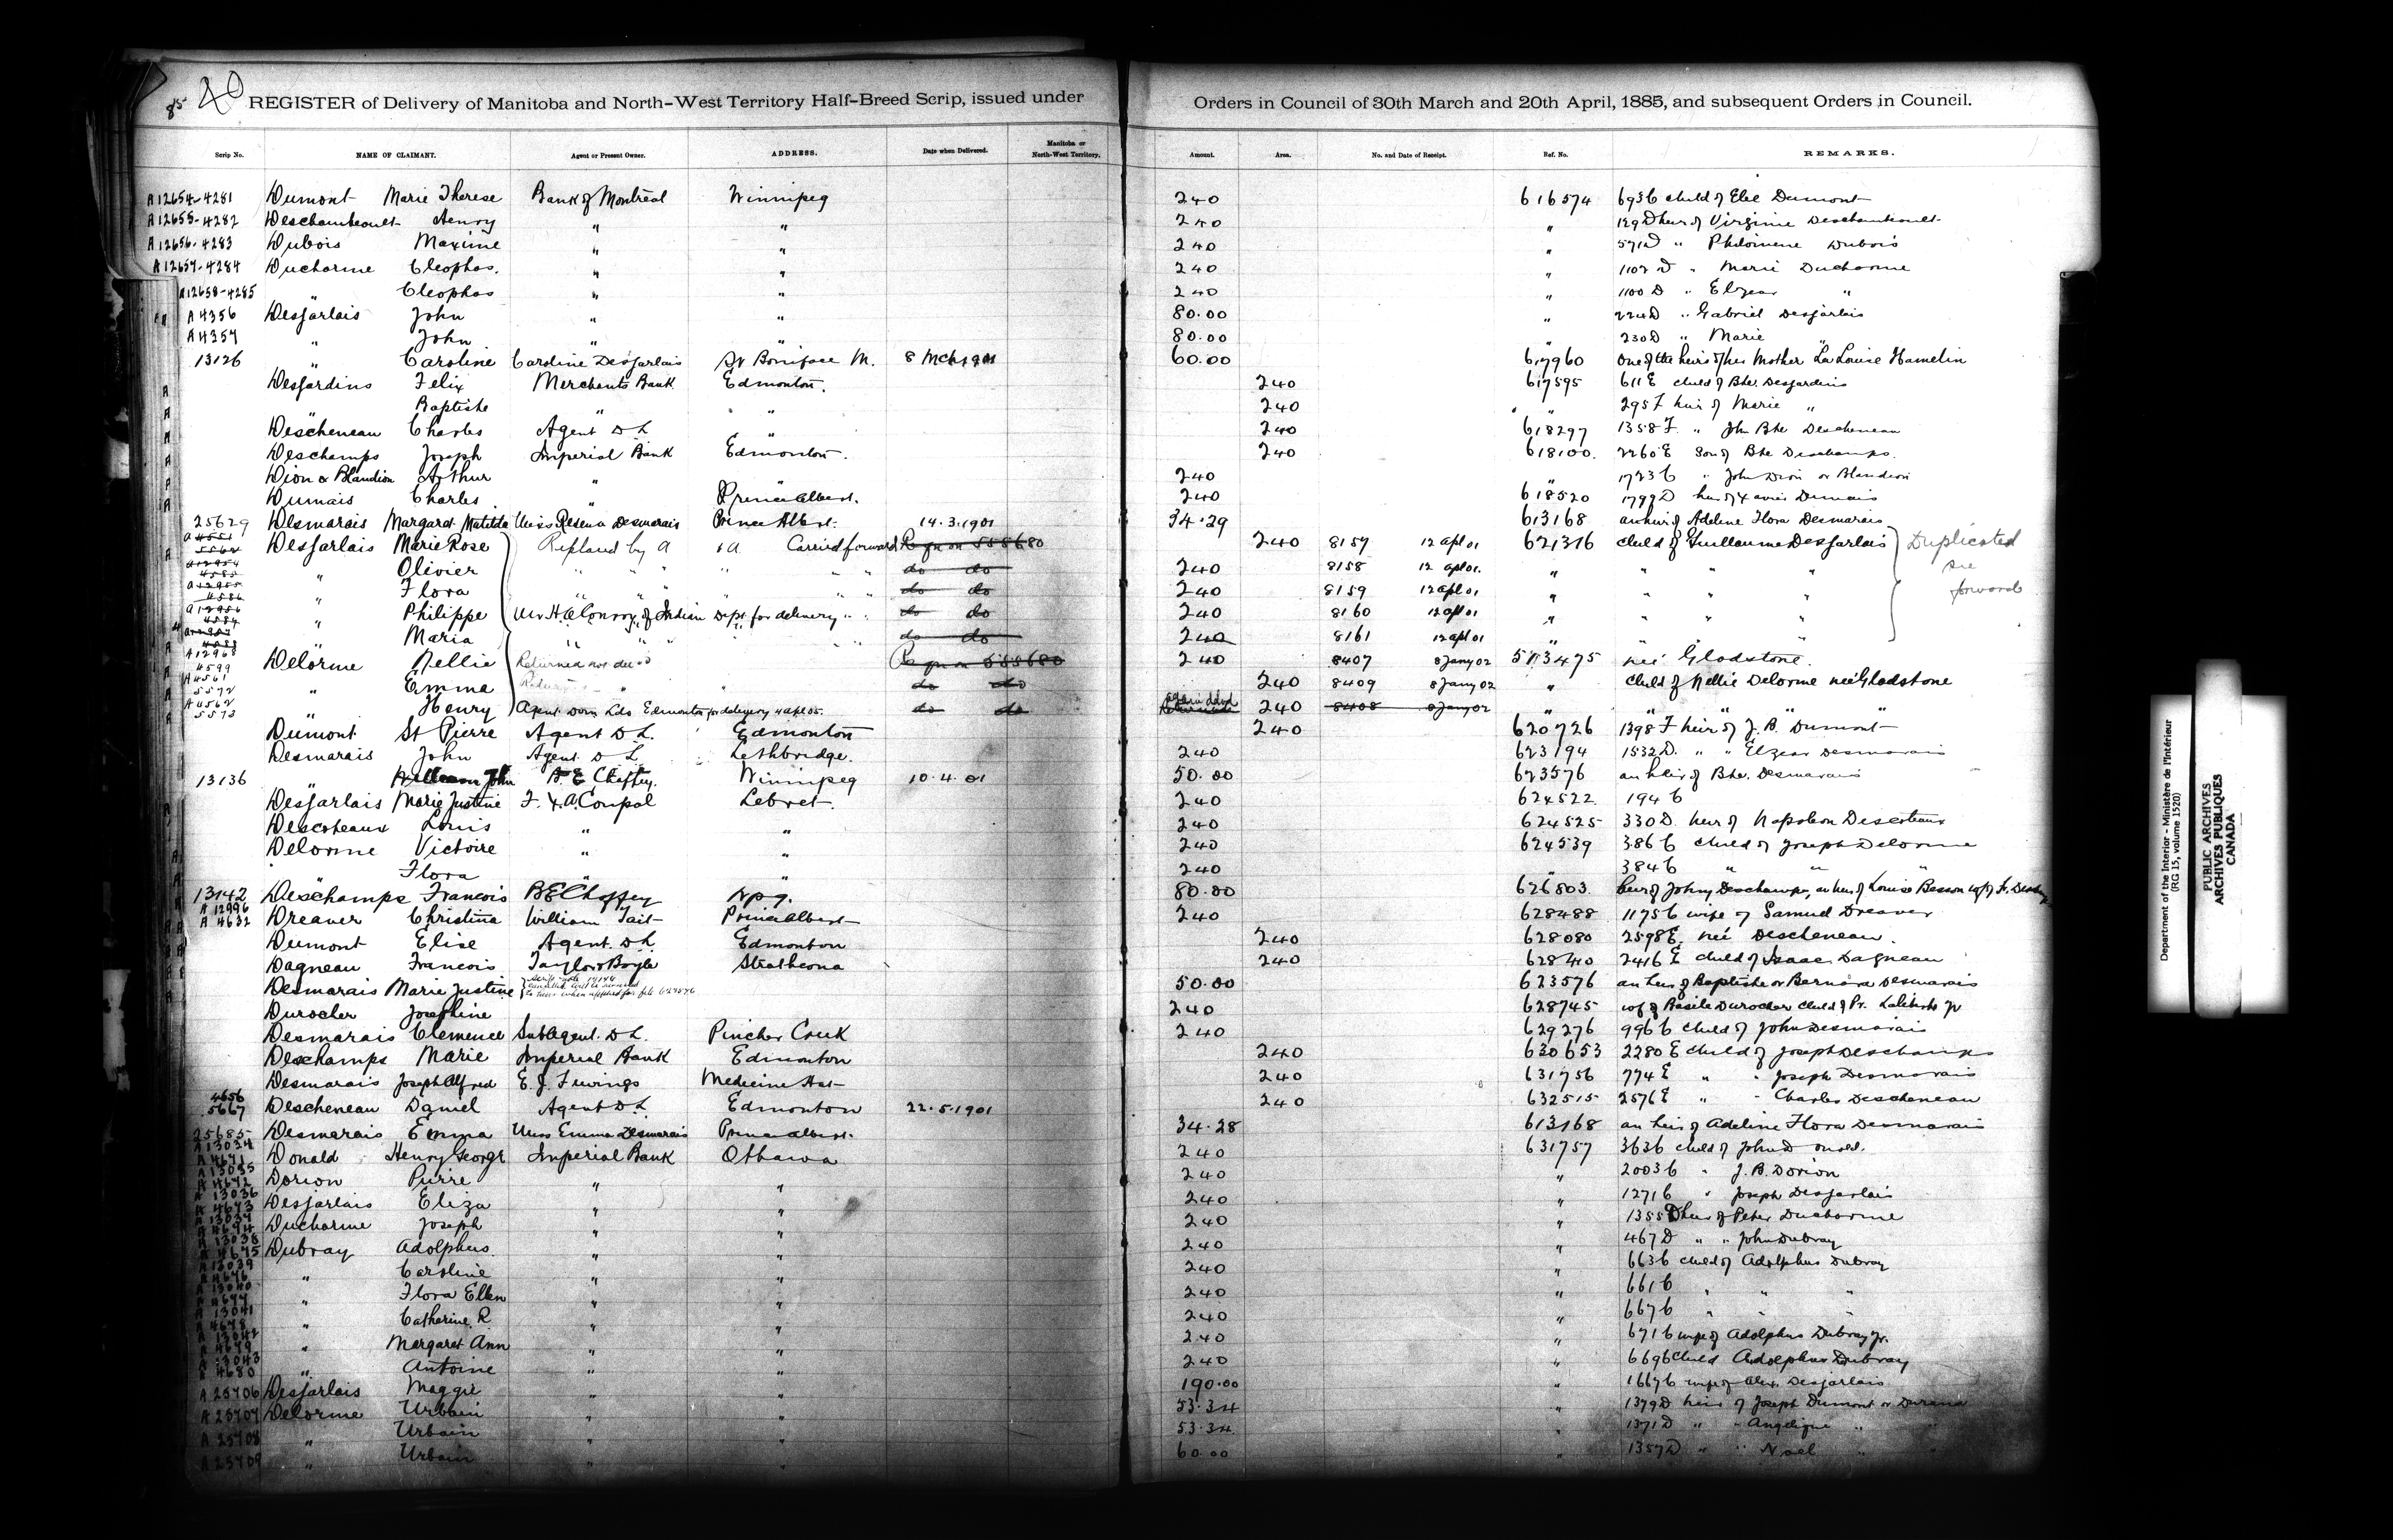 85 40 REGISTER of Delivery of Manitoba and North-West Territory Half-Breed Scrip, issued under Orders in Council of 30th March and 20th April, 1885, and subsequent Orders in Council.
Scrip No. NAME OF CLAIMANT. Agent or Present Owner. ADDRESS. Date when Delivered. Manitoba or North-West Territory. Amount. Area. No. and Date of Receipt. Ref. No. REMARKS.
A12654-4281 Dumont Marie Therese Bank of Montreal Winnipeg 240 616574 693C child of Elie Dumont
A12655-4282 Deschambeault Henry " " 240 " 129D heir of Virginie Deschambeault
A12656-4283 Dubois Maxime " " 240 " 571D " Philomene Dubois
A12657-4284 Ducharme Cleophas. " " 240 " 1102 D " Marie Ducharme
A12658-4285 " Cleophas " " 240 " 1100 D " Elzear "
A4356 Desjarlais John " " 80.00 " 224D " Gabriel Desjarlais
A4357 " John " " 80.00 " 230D " Marie "
13126 " Caroline Caroline Desjarlais St Boniface M. 8 Mch 1901 60.00 617960 one of the heirs of her Mother La Louise Hamelin
A Desjardins Felix Merchants Bank Edmonton. 240 617595 611 E child of Bte. Desjardins
A " Baptiste " " 240 " 295 F heir of Marie "
A Descheneau Charles Agent D L " 240 618297 1358 F. " John Bte Descheneau
A Deschamps Joseph Imperial Bank Edmonton. 240 618100. 2260 E son of Bte Deschamps.
A Dion or Blandion Arthur " 240 " 1723 C " John Dion or Blandion
A Dumais Charles " Prince Albert. 240 618520 1799 D heir of Xavier Dumais
25629 Desmarais Margaret Matilda Miss Desmarais Prince Albert. 14.3.1901 34.29 613168 an heir of Adeline Flora Desmarais
Desjarlais Marie Rose Replaced by A Carried forward 240 8157 12 apl 01 621316 child of Guillaume Desjarlais Duplicated
" Olivier " " do do 240 8158 12 apl 01. " " " " see
" Flora " " do do 240 8159 12 apl 01 " " " " forward
" Philippe Mr H. A. Conroy, of Indian Dept. for delivery " do do 240 8160 12 apl 01 " " " "
" Maria " " do do 240 8161 12 apl 01 " " "
A12968 4599 Delorme Nellie Returned 240 8407 8 Jany 02 573475 neé Gladstone.
A4561 5572 " Emma " " do do 240 8409 8 Jany 02 " child of Nellie Delorme neé Gladstone
A4562 5573 " Henry Agent Dom Lds Edmonton for delivery 4 apl 05. do do 240 8408 8 Jany 02 " " " "
Dumont St Pierre Agent D L. Edmonton 240 620726 1398 F heir of J. B. Dumont
Desmarais John Agent D L Lethbridge. 240 623194 1532 D. " " Elzear Desmarais
13136 " John B. E Chaffey. Winnipeg 10.4.01 50.00 623576 an heir of Bte. Desmarais
Desjarlais Marie Justine F. X. A. Coupal Lebret. 240 624522 194 C
Descoteaux Louis " " 240 624525 330 D. heir of Napoleon Descoteaux
Delorme Victoire " " 240 624539 386 C child of Joseph Delorme
" Flora " " 240 " 384 C " " "
13142 Deschamps Francois B E Chaffey Wpg. 80.00 626803.
A 12996 A 4632 Dreaver Christina William Tait Prince Albert 240 628488 1175 C wife of Samuel Dreaver
Dumont Elise Agent. D L. Edmonton 240 628080 2598 E. neé Descheneau.
Dagneau Francois Taylor & Boyle Strathcona 240 628410 2416 E child of Isaac Dagneau
Desmarais Marie Justine 50.00 623576 an heir of Baptiste or Bernard Desmarais
Durocher Josephine 240 628745 wife of Basile Durocher child of Pr. Laliberte Jr
Desmarais Clemence Sub Agent. D L. Pincher Creek 240 629276 996 C child of John Desmarais
Deschamps Marie Imperial Bank Edmonton 240 630653 2280 E child of Joseph Deschamps
Desmarais Joseph Alfred E. J. Fewings Medicine Hat 240 631756 774 E " " Joseph Desmarais
4656 5667 Descheneau Daniel Agent D L Edmonton 22.5.1901 240 632515 2576 E " " Charles Descheneau
25685 Desmarais Emma Miss Emma Desmarais Prince Albert. 34.28 613168 an heir of Adeline Flora Desmarais
A13034 A4671 Donald Henry George Imperial Bank Ottawa 240 631757 363C child of John Donald.
A13035 A4672 Dorion Pierre " " 240 " 2003C " J. B. Dorion
A 13036 A 4673 Desjarlais Eliza " " 240 " 1271C " Joseph Desjarlais
A 13037 A 4674 Ducharme Joseph " " 240 " 1355 D heir of Peter Ducharme
A 13038 A 4675 Dubray Adolphus. " " 240 " 467 D " " John Dubray
A 13039 A 4676 " Caroline " " 240 " 663C child of Adolphus Dubray
A 13040 A 4677 " Flora Ellen " " 240 " 661C " " "
A 13041 A 4678 " Catherine. R " " 240 " 667C " " "
A 13042 A 4679 " Margaret Ann " " 240 " 671C wife of Adolphus Dubray Jr.
A 13043 A 4680 " Antoine " " 240 " 669C child Adolphus Dubray
A 25706 Desjarlais Maggie " " 190.00 " 1667C wife of Alex. Desjarlais
A 25707 Delorme Urbain " " 53.34 " 1379 D heir of Joseph Dumont or
A 25708 " Urbain " " 53.34 " 1371 D " " Angelique " "
A 25709 " Urbain " " 60.00 " 1357 D " " Noel " "
Department of the Interior - Ministère de l'Intérieur
(RG 15, volume 1520)
PUBLIC ARCHIVES
ARCHIVES PUBLIQUES
CANADA